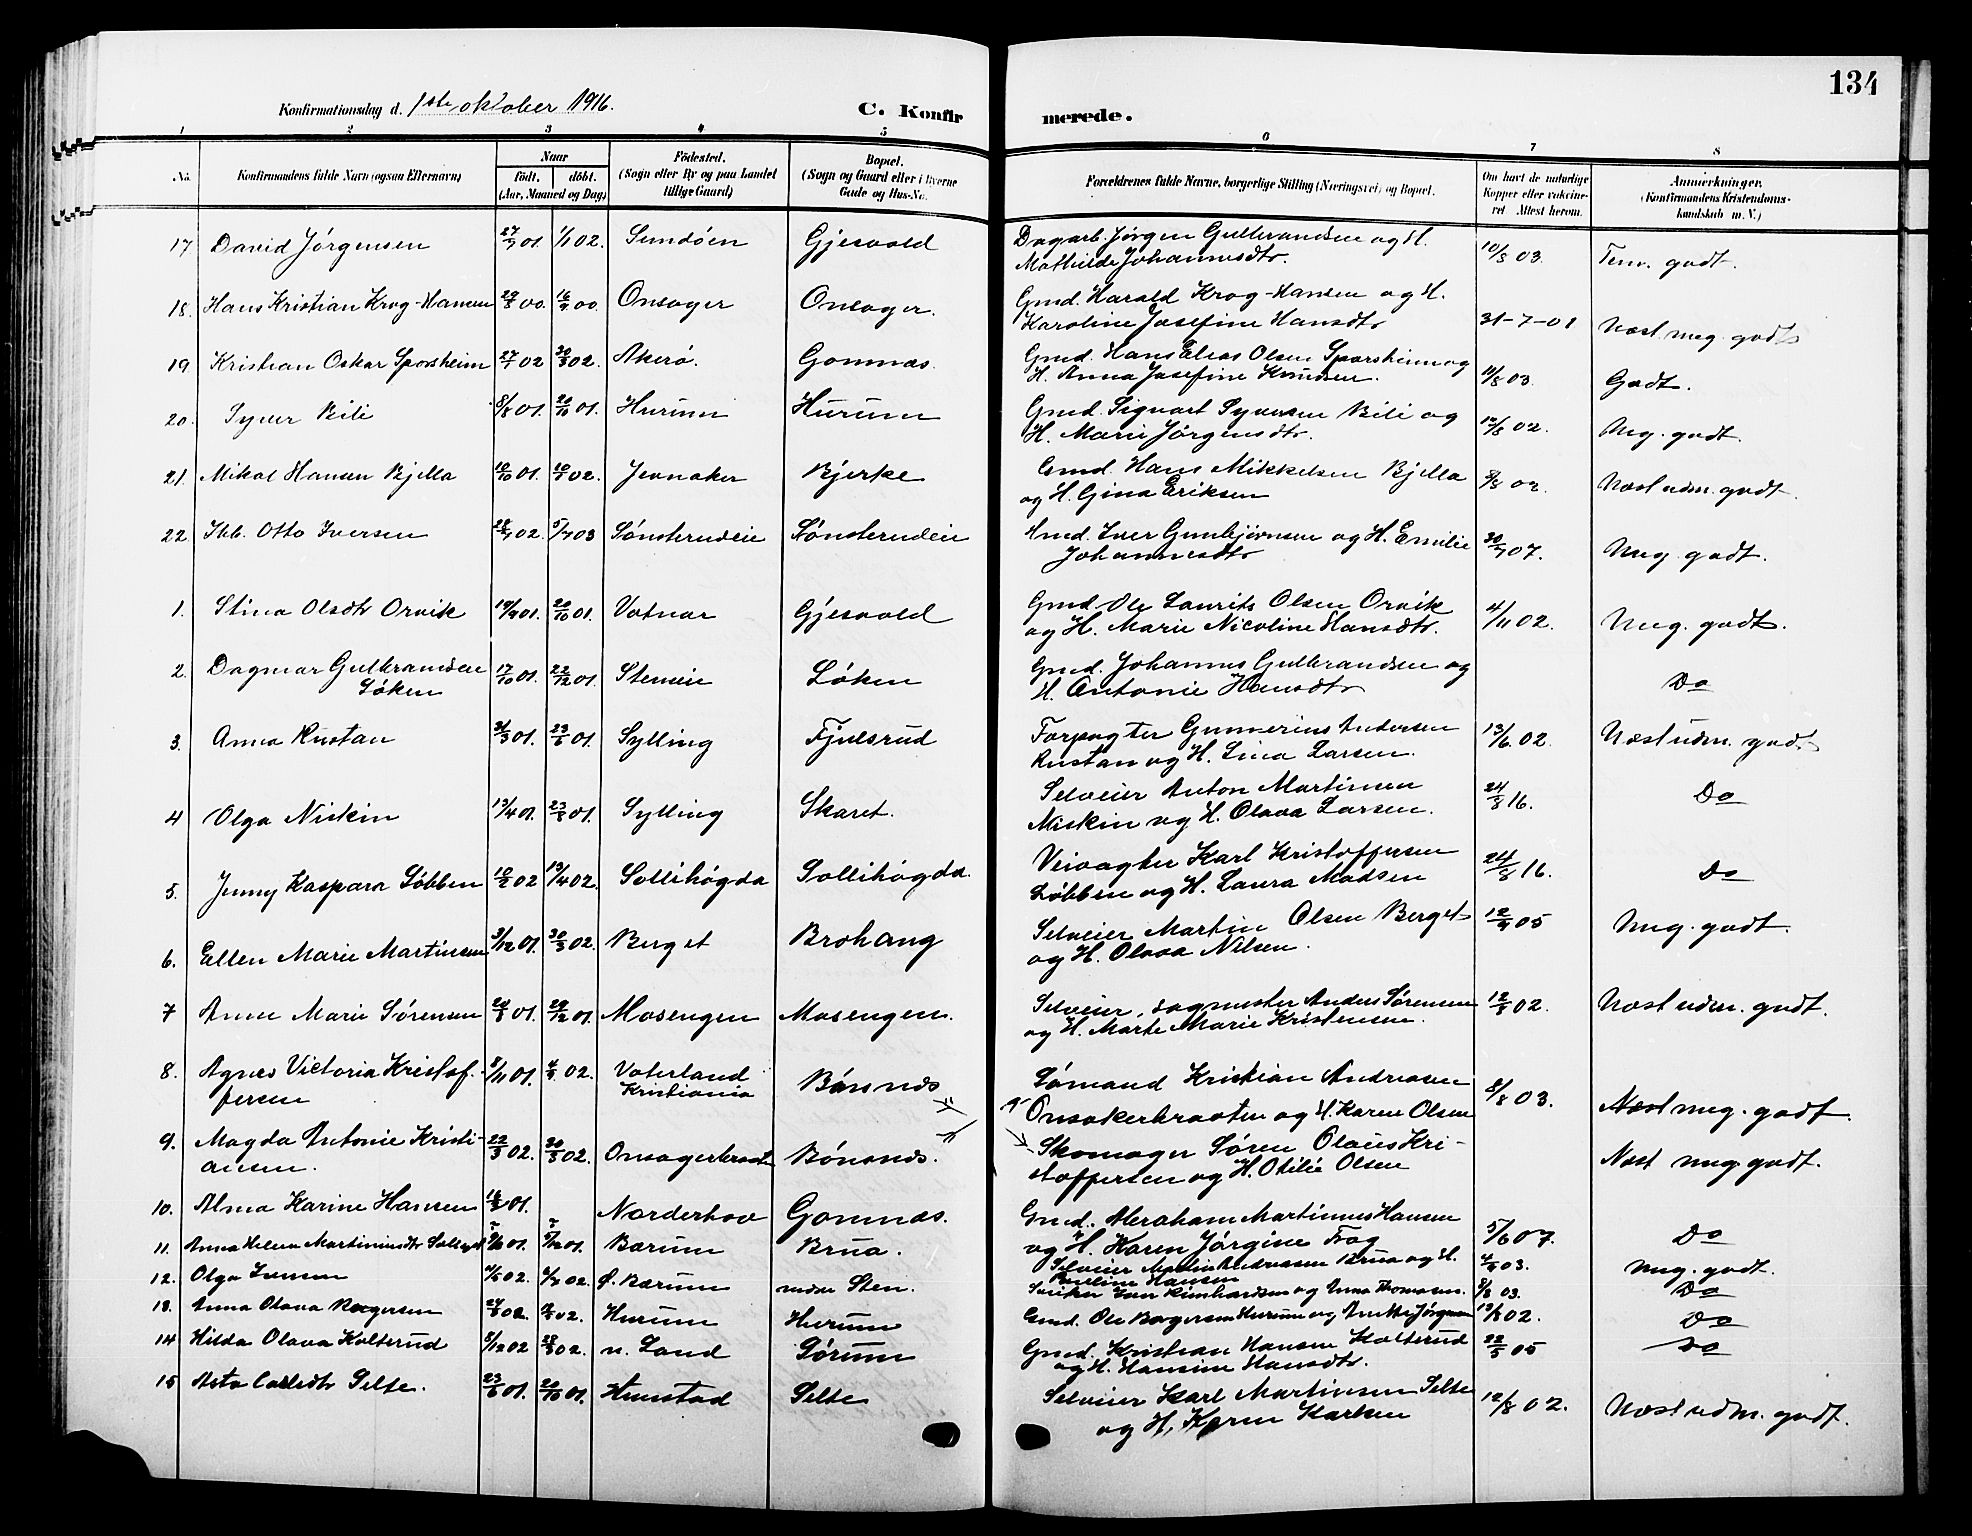 134
Konfirmationsdag d. 1ste oktober 1916.
C. Konfirmerede.
1 2 3 4 5 6 7 8
No. Konfirmandens fulde Navn (ogsaa Efternavn) Naar født. døbt. (Aar, Maaned og Dag) Fødested. (Sogn eller By og paa Landet tillige Gaard) Bopæl. (Sogn og Gaard eller i Byerne Gade og Hus-No. Forældrenes fulde Navne, borgerlige Stilling (Næringsvei) og Bopæl. Om havt de naturlige Kopper eller vakcineret Attest herom. Anmerkninger. (Konfirmandens Kristendomskundskab m. V.)
17 David Jørgensen 27/7 01. 1/1 02. Sundøen Gjesvold Dagarb. Jørgen Gulbrandsen og H. 10/8 03. Tem. godt.
Mathilde Johannesdtr.
18. Hans Kristian Krog-Hansen 29/8 00. 16/9 00. Onsager Onsager. Gmd. Harald Krog-Hansen og H.
Karoline Josefine Hansdtr 31-7-01 Næst meg. godt
19 Kristian Oskar Sporsheim 27/1 02 30/3 02. Akerø. Gomnæs. Gmd. Hans Elias Olsen Sporsheim og
H. Anna Josefine Knudsen. 11/8 03. Godt.
20. Syver Bili 8/8 01. 20/10 01. Hurum Hurum Gmd. Sigvart Syversen Bili og
H. Marie Jørgensdtr. 12/8 02. Meg. godt.
21. Mikal Hansen Bjella 10/10 01. 10/3 02. Jevnaker Bjerke Gmd. Hans Mikkelsen Bjella
og H. Gina Eriksen 8/8 02. Næst udm. godt.
22 Otto Iversen 28/9 02. 5/7 03 Sønsterudeie Sønsterudeie Hmd. Iver Gunbjørnsen og H. Emilie
Johannesdtr 30/9 07. Meg. godt.
1. Stina Olsdtr Orvik 19/9 01. 20/10 01. Votnar Gjesvold Gmd. Ole Laurits Olsen Orvik
og H. Marie Nicoline Hansdtr. 4/11 02. Meg. godt.
2. Dagmar Gulbrandsen 17/10 01. 22/12 01. Steneie Løken Gmd. Johannes Gulbrandsen og
Løken H. Antonie Hansdtr Do
3. Anna Rustan 31/3 01. 23/6 01. Sylling Fjulsrud Forpagter Gunnerius Andersen
Rustan og H. Lina Larsen. 13/6 02. Næst udm. godt
4 Olga Niskin 13/4 01. 23/6 01. Sylling Skaret. Selveier Anton Martinsen
Niskin og H. Olava Larsen. 24/8 16. Do
5. Jenny Kaspara Løbben 10/2 02 13/4 02. Sollihøgda Sollihøgda. Veivogter Karl Kristoffersen
Løbben og H. Laura Madsen 24/8 16. Do
6. Ellen Marie Martinsen 31/12 01. 30/3 02. Berget Brohaug Selveier Martin Olsen Berget
og H. Olava Nilsen. 12/9 05 Meg. godt.
7 Anna Marie Sørensen 24/8 01. 29/12 01. Mosengen Mosengen. Selveier, sagmester Anders Sørensen
og H. Marte Marie Kristensen. 12/8 02. Næst udm. godt.
8. Agnes Victoria Kristoffersen 8/11 01. 4/5 02. Vaterland Kristiania Bønsnes Sømand Kristian Andreasen
Onsakerbraaten og H. Karen Olsen 8/8 03. Næst meg. godt.
9. Magda Antonie Kristiansen. 22/3 02. 30/3 02. Onsagerbraat Bønsnes. Skomager Søren Olaus Kristoffersen og H. Otilie Olsen Næst meg godt.
10. Alma Karine Hansen 16/2 01. Norderhov Gomnæs. Gmd. Abraham Martinius Hansen
og H. Karen Jørgine Fog 5/6 07. Do
11. Anna Helene Martiniusdtr Bærum Brua. Selveier Andreasen Brua og H.
Pauline Hansen 4/9 03. Meg. godt.
12. Olga Iversen 02. Ø. Bærum nedre Sten. Iver Reinhardsen og Anna Thomasen. 8/8 03. Do
13. Anna Olava Borgersen 24/6 02. 02. Hurum Hurum Gmd. Ole Borgersen Hurum og Anette Jørgensen 12/8 02. Do
14 Hilda Olava Kolterud 8/12 02 02. n. Land Sørum Gmd. Kristian Hansen Kolterud
og H. Hansine Hansdtr. 22/5 05 Do
15 Asta Carlsdtr Selte. 23/6 01. 20/10 01. Hunstad Selte Selveier Karl Martinsen Selte
og H. Karen Karlsen 12/8 02. Næst udm. godt.